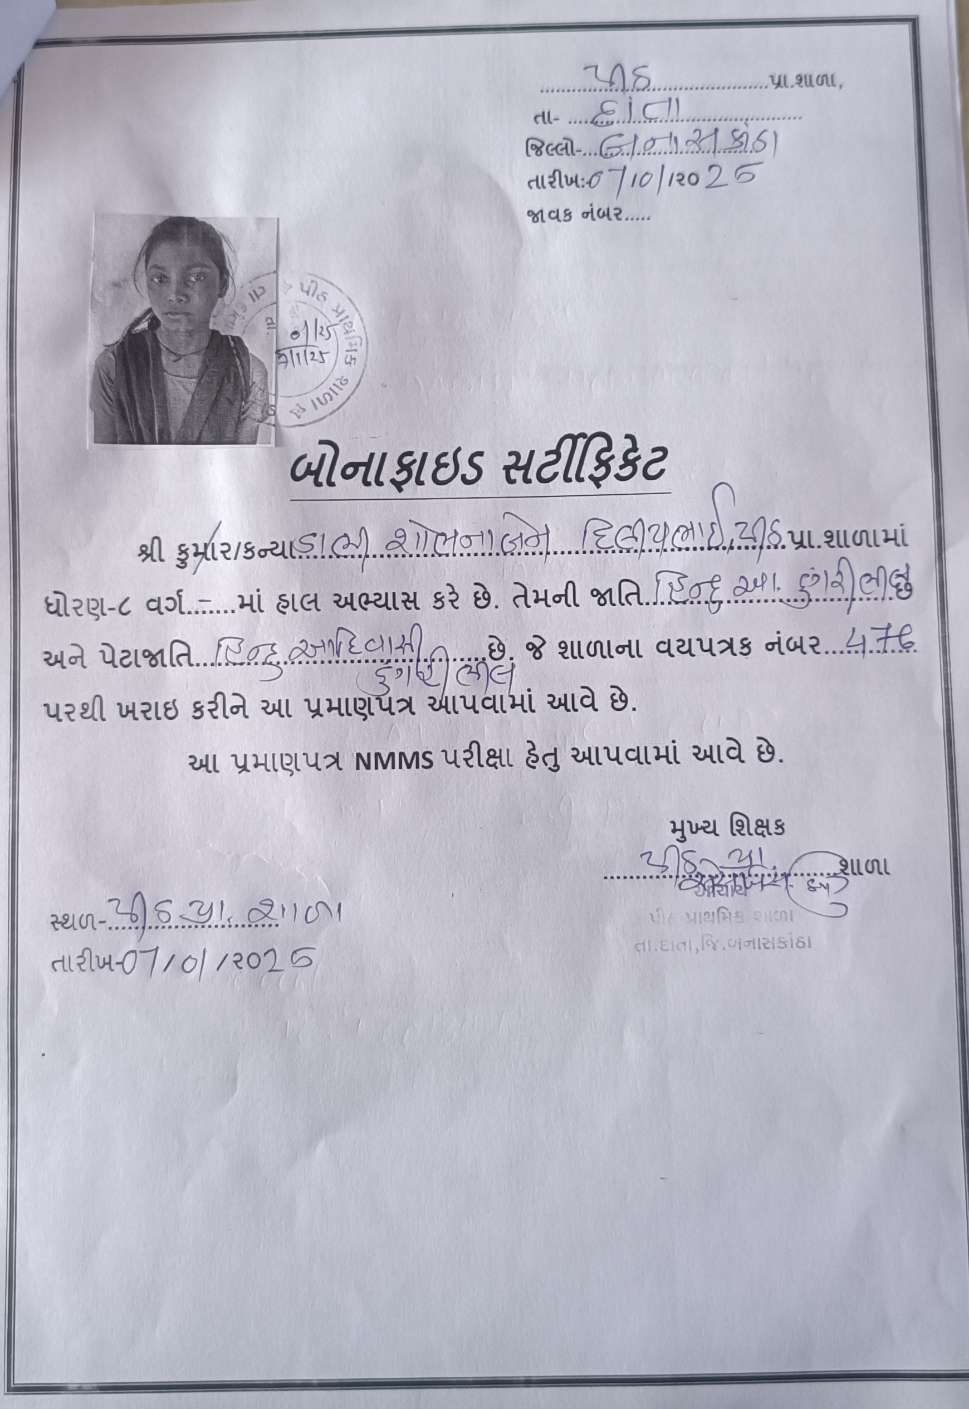 પીઠ પ્રા.શાળા,
તા- દાંતા
જિલ્લો- બનાસકાંઠા
તારીખ:07/10/૨૦25
જાવક નંબર.....
પીઠ પ્રાથમિક શાળા
બોનાફાઇડ સર્ટીફિકેટ
શ્રી કુમાર/કન્યા ડાભી શોભનાબેન દિલીપભાઈ, પીઠ પ્રા.શાળામાં
ધોરણ-૮ વર્ગ..-.....માં હાલ અભ્યાસ કરે છે. તેમની જાતિ હિન્દુ આ. ડુંગરી ભીલ છે
અને પેટાજાતિ હિન્દુ આદિવાસી છે. જે શાળાના વયપત્રક નંબર
ડુંગરી ભીલ
પરથી ખરાઇ કરીને આ પ્રમાણપત્ર આપવામાં આવે છે.
આ પ્રમાણપત્ર NMMS પરીક્ષા હેતુ આપવામાં આવે છે.
મુખ્ય શિક્ષક
પીઠ પ્રા. શાળા
આચાર્ય
પીઠ પ્રાથમિક શાળા
તા.દાંતા,જિ.બનાસકાંઠા
સ્થળ- પીઠ પ્રા. શાળા
તારીખ-07/10/૨૦25